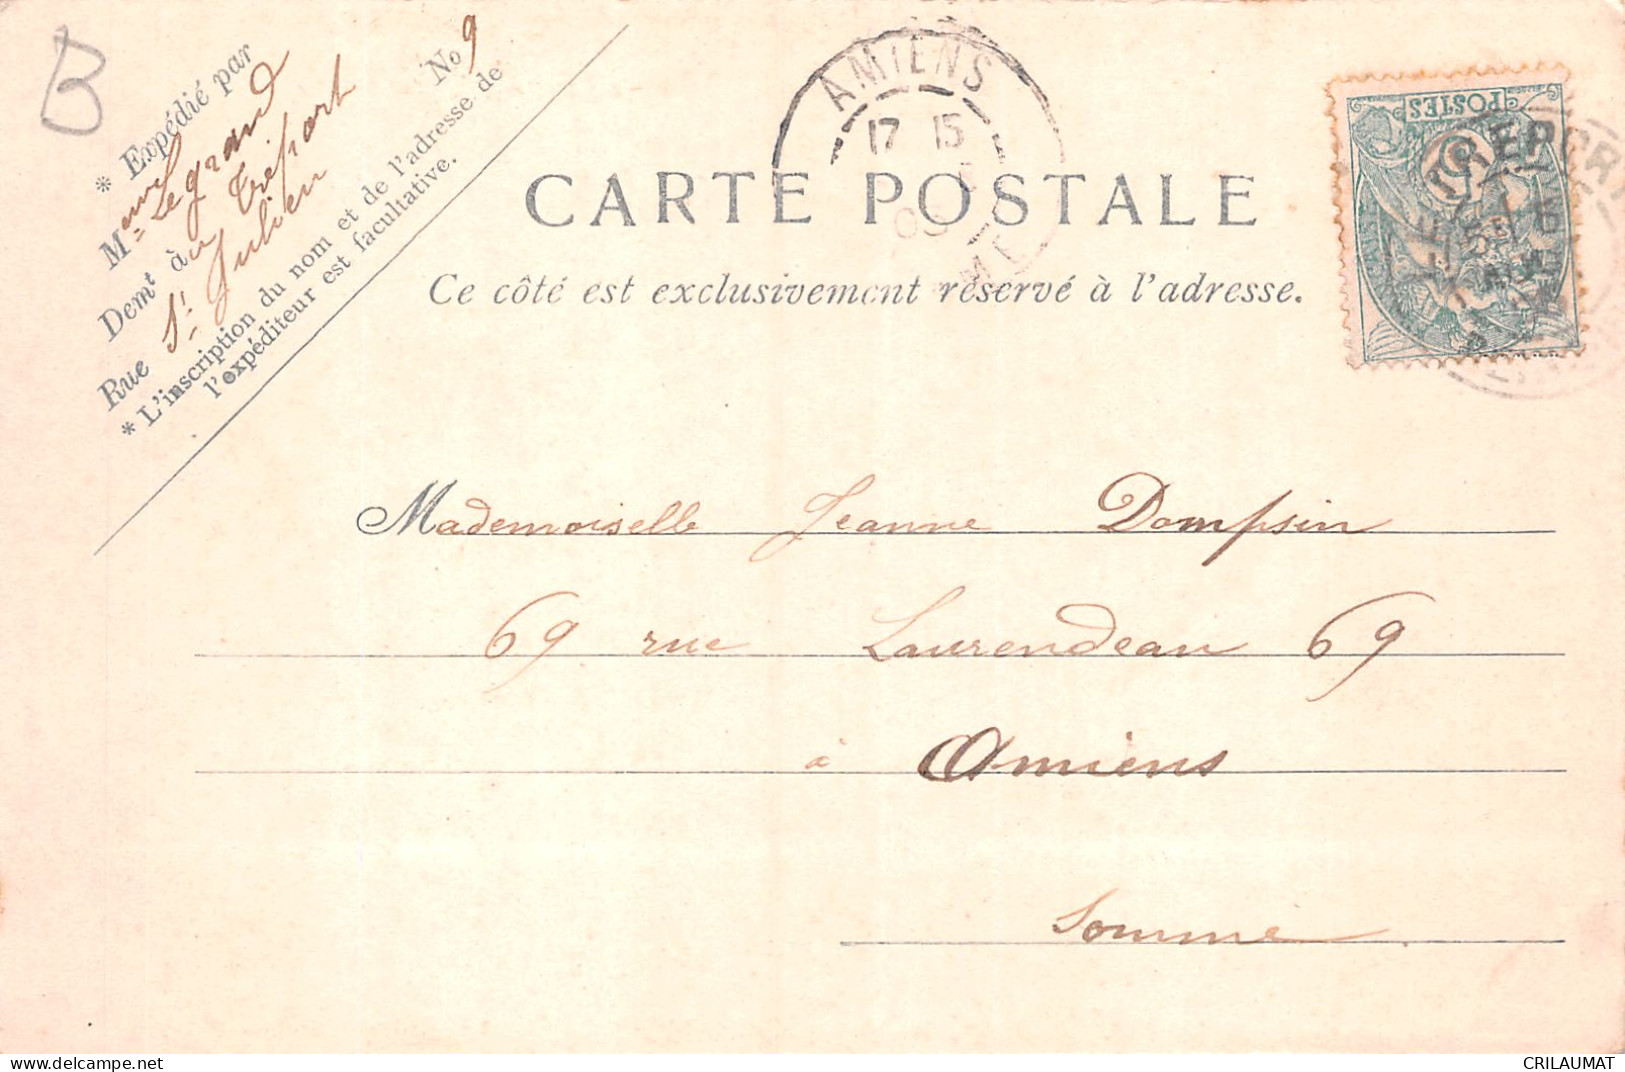 B
* Expédié par
No 9
Mme Legrand
Demt à au Tréport
Rue St Julien
* L'inscription du nom et de l'adresse de
l'expéditeur est facultative.
AMIENS
17 15
CARTE POSTALE
Ce côté est exclusivement réservé à l'adresse.
POSTES
LE TREPORT
Mademoiselle Jeanne Dompsin
69 rue Laurendeau 69
à Amiens
Somme
CRILAUMAT